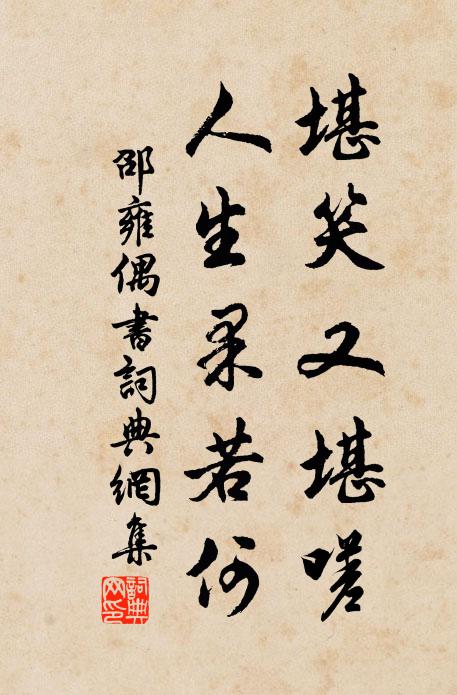 堪笑又堪嗟
人生果若何
邵雍偶書詞典網集
詞典網印